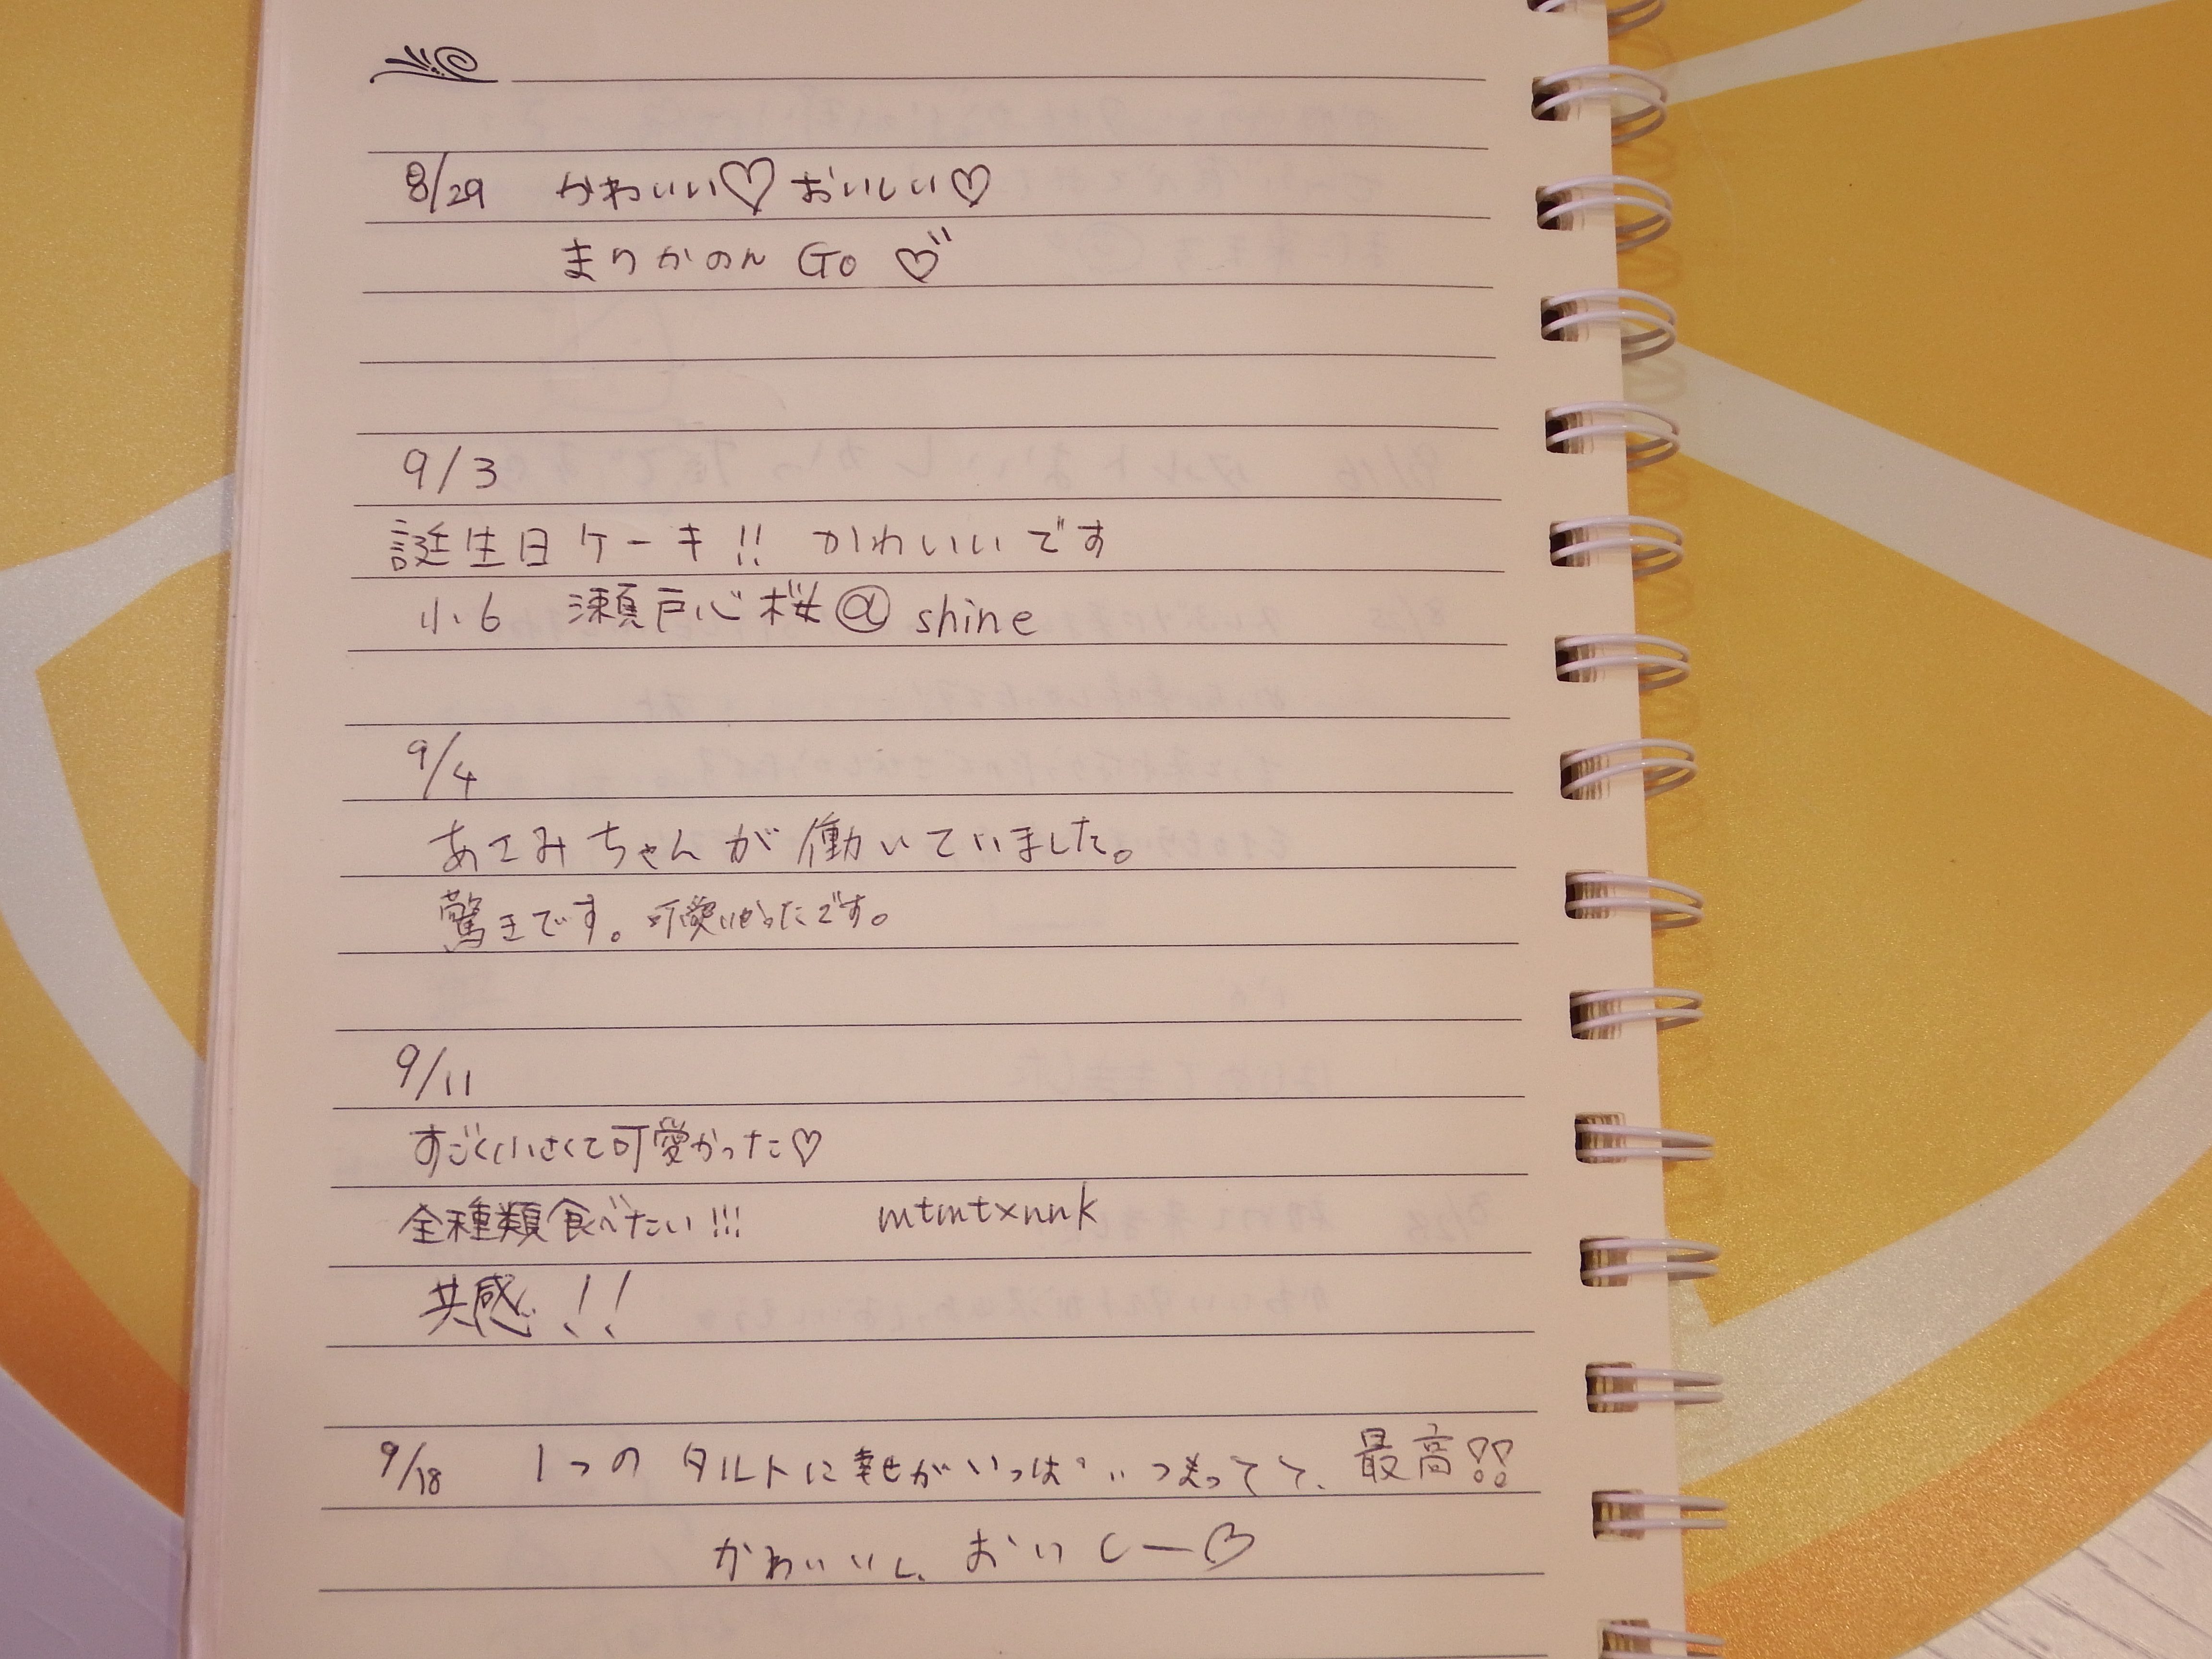 8/29 かわいい♡ おいしい♡
まりかのん Go ♡
9/3
誕生日ケーキ!! かわいいです
小6 瀬戸心桜@shine
9/4
あさみちゃんが働いていました。
驚きです。可愛いかったです。
9/11
すごく小さくて可愛かった♡
全種類食べたい!!! mtmt×nnk
共感!!
9/18 1つのタルトに幸せがいっぱいつまってて、最高!!
かわいいし、おいしー♡